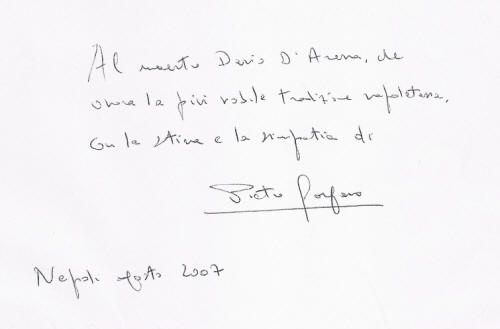 Al maestro Dario D'Arena, che
onora la più nobile tradizione napoletana,
con la stima e la simpatia di
Pietro Gargano
Napoli agosto 2007